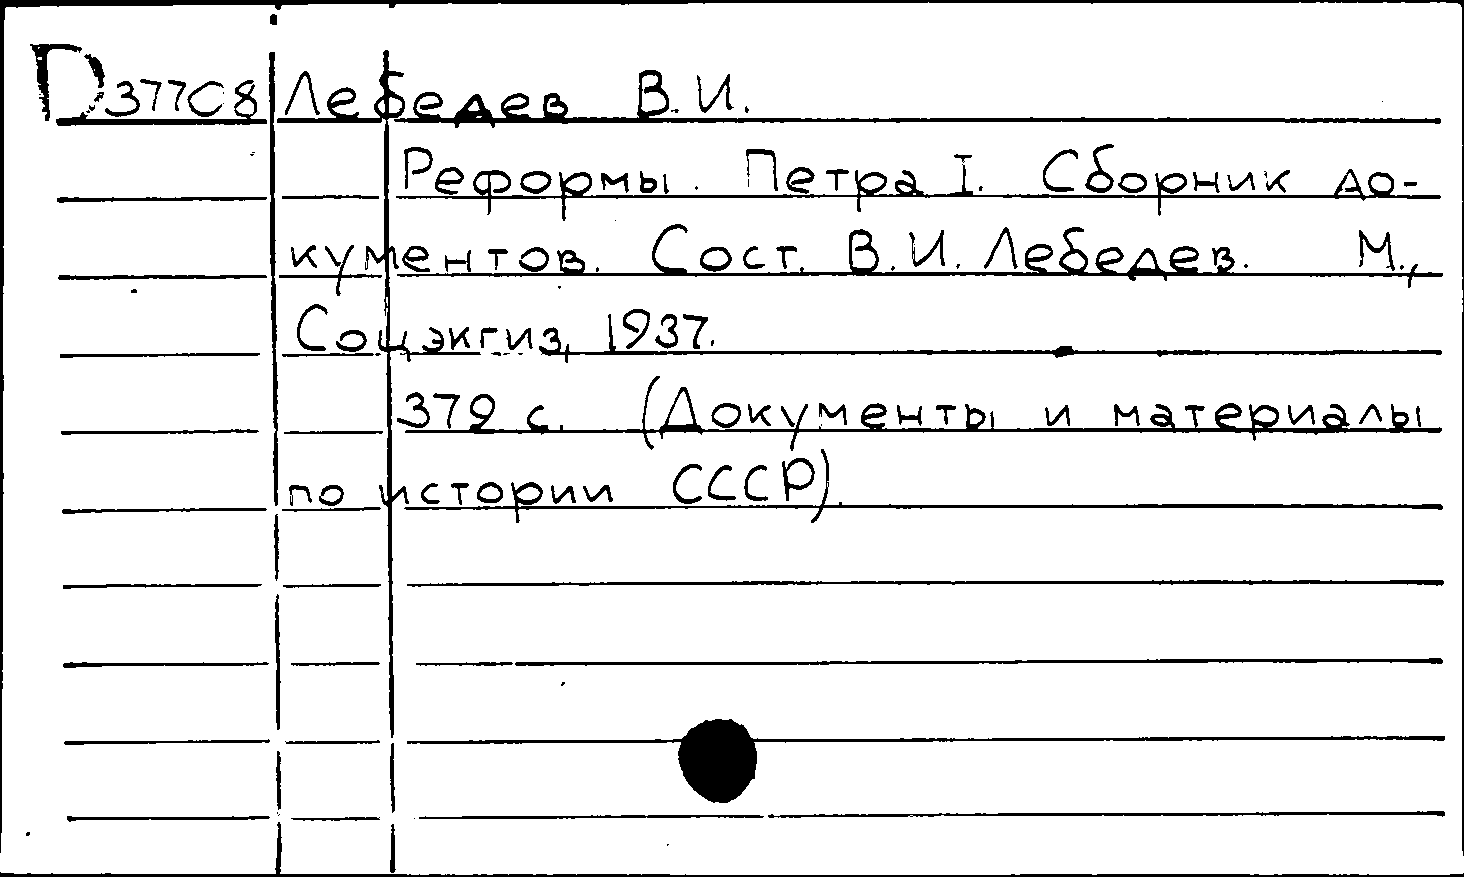 D37708 Лебедев В.И.
Реформы Петра I. Сборник до-
кументов. Сост. В.И. Лебедев. М.,
Соцэкгиз, 1937.
379 с. (Документы и материалы
по истории СССР).